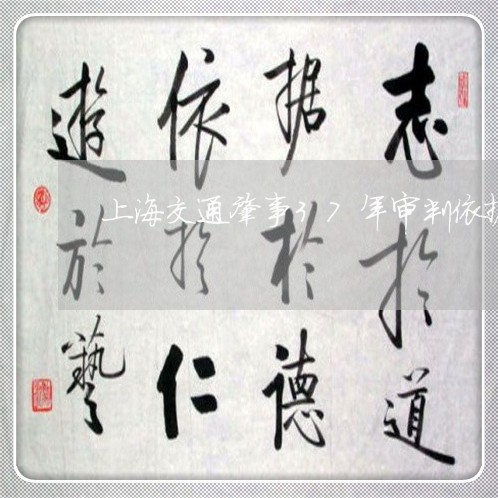 志扵道
据扵德
依扵仁
遊於藝
上海交通肇事37年审判依